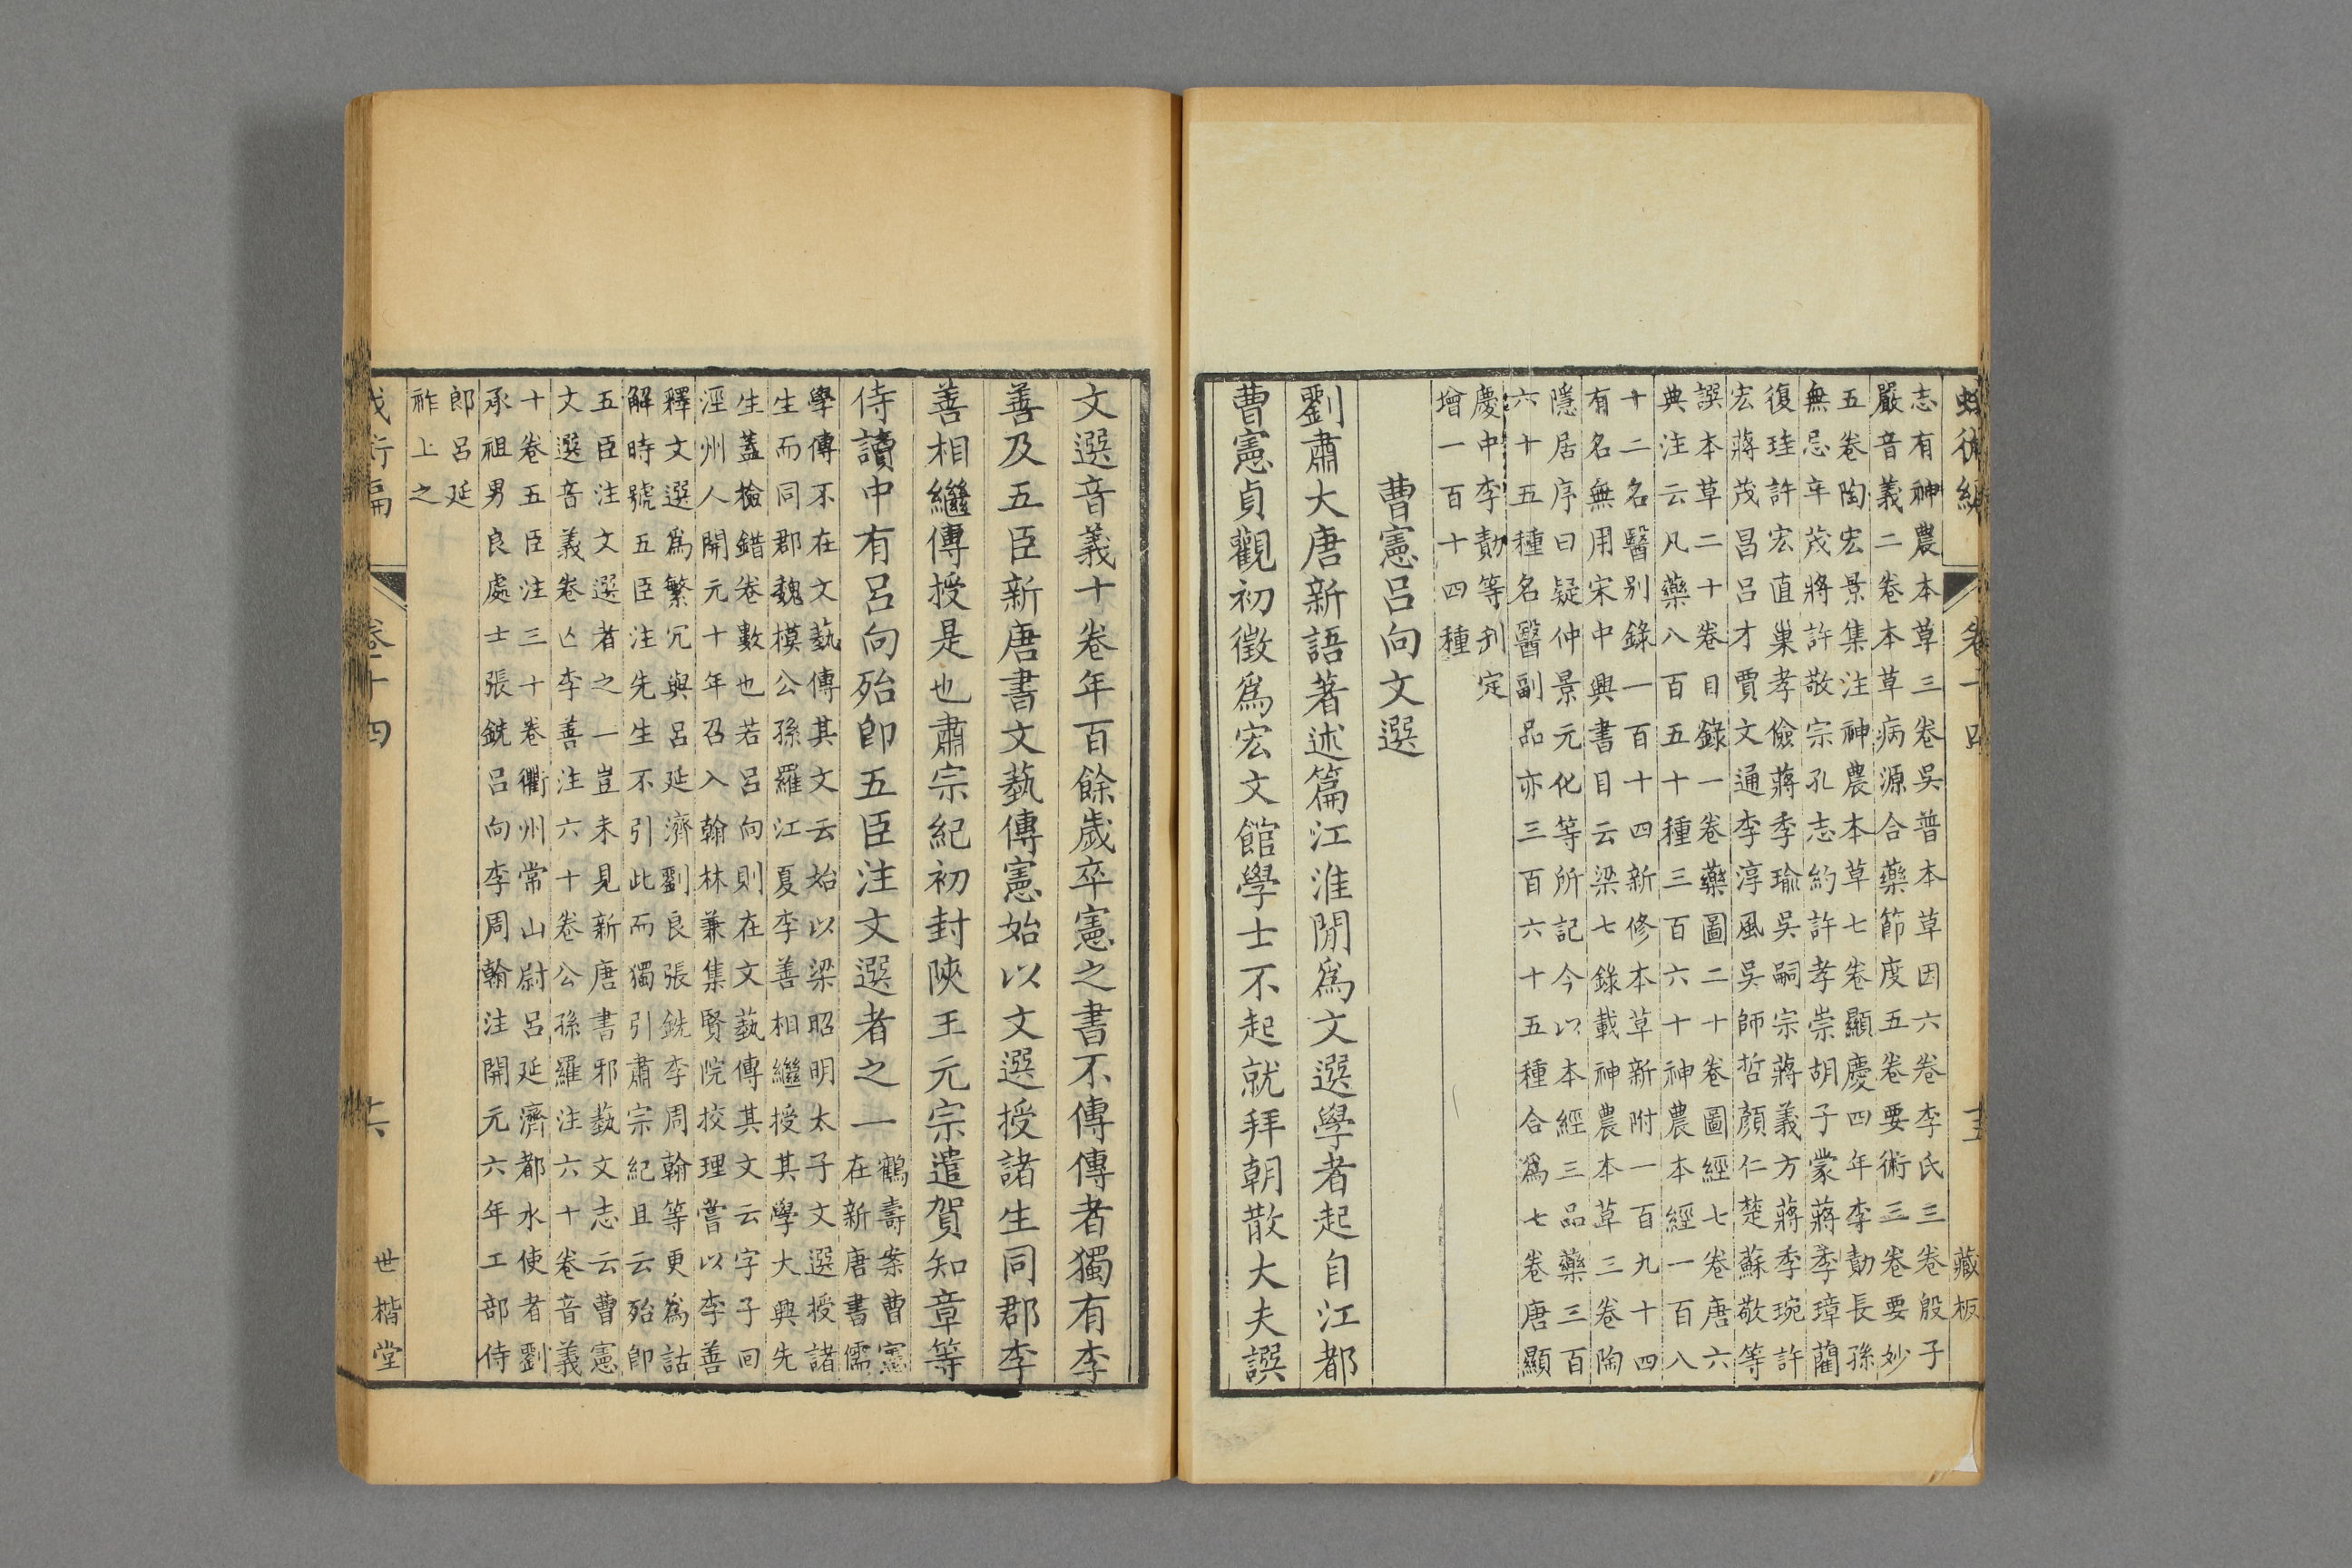 蛾術編 卷十四 十五 藏板
志有神農本草三卷吳普本草因六卷李氏三卷殷子
嚴音義二卷本草病源合藥節度五卷要術三卷要妙
五卷陶宏景集注神農本草七卷顯慶四年李勣長孫
無忌辛茂將許敬宗孔志約許孝崇胡子彖蔣季璋藺
復珪許宏直巢孝儉蔣季瑜吳嗣宗蔣義方蔣季琬許
宏蔣茂昌呂才賈文通李淳風吳師哲顏仁楚蘇敬等
譔本草二十卷目錄一卷藥圖二十卷圖經七卷唐六
典注云凡藥八百五十種三百六十神農本經一百八
十二名醫别錄一百十四新修本草新附一百九十四
有名無用宋中興書目云梁七錄載神農本草三卷陶
隱居序曰疑仲景元化等所記今以本經三品藥三百
六十五種名醫副品亦三百六十五種合爲七卷唐顯
慶中李勣等刋定
增一百十四種
曹憲呂向文選
劉肅大唐新語著述篇江淮閒爲文選學者起自江都
曹憲貞觀初徵爲宏文館學士不起就拜朝散大夫譔
文選音義十卷年百餘歲卒憲之書不傳傳者獨有李
善及五臣新唐書文藝傳憲始以文選授諸生同郡李
善相繼傳授是也肅宗紀初封陝王元宗遣賀知章等
侍讀中有呂向殆卽五臣注文選者之一
鶴壽案曹憲
在新唐書儒
學傳不在文藝傳其文云始以梁昭明太子文選授諸
生而同郡魏模公孫羅江夏李善相繼授其學大興先
生蓋檢錯卷數也若呂向則在文藝傳其文云字子回
涇州人開元十年召入翰林兼集賢院校理嘗以李善
釋文選爲繁冗與呂延濟劉良張銑李周翰等更爲詁
解時號五臣注先生不引此而獨引肅宗紀且云殆卽
五臣注文選者之一豈未見新唐書邪藝文志云曹憲
文選音義卷亡李善注六十卷公孫羅注六十卷音義
十卷五臣注三十卷衢州常山尉呂延濟都水使者劉
承祖男良處士張銑呂向李周翰注開元六年工部侍
郎呂延
祚上之
蛾術編 卷十四 十六 世楷堂